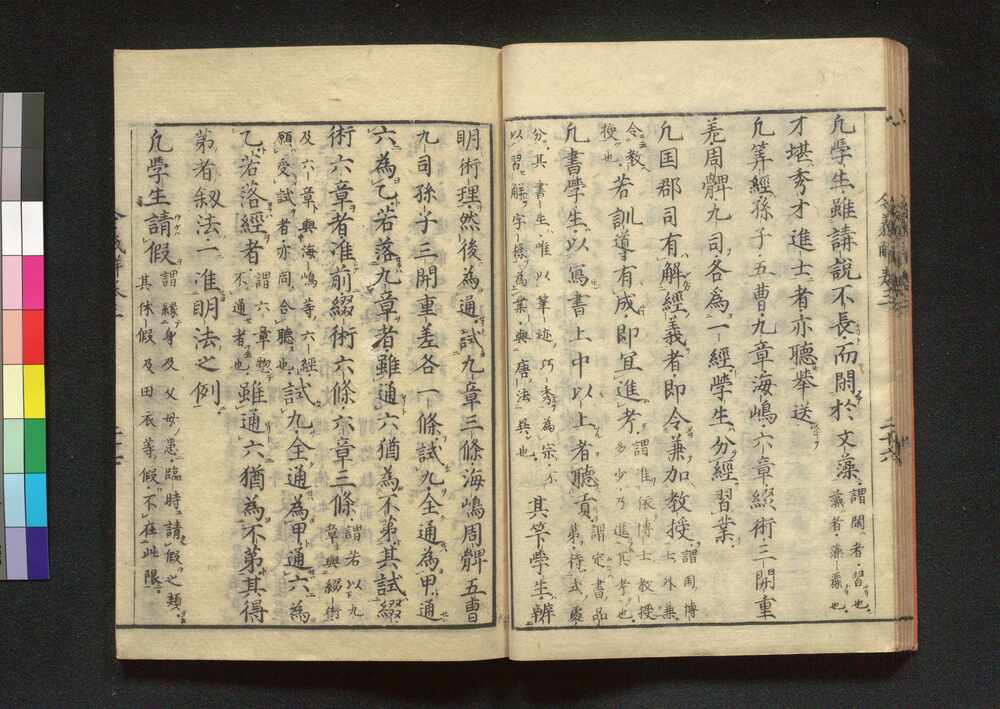 凡學生雖講說不長而閑於文藻謂閑者習也藻者藻麗也
才堪秀才進士者亦聽擧送
凡筭經孫子五曹九章海嶋六章綴術三開重
差周髀九司各爲一經學生分經習業
凡国郡司有解經義者即令兼加教授謂国博士外兼
令教授也若訓導有成即宜進考謂准依博士教授多少乃進其考也
凡書學生以寫書上中以上者聽貢謂定書品第待式處
分其書生唯以筆迹巧秀爲宗不以習解字樣爲業與唐法異也其筭學生辨
明術理然後為通試九章三條海嶋周髀五曹
九司孫子三開重差各一條試九全通為甲通
六為乙若落九章者雖通六猶為不第其試綴
術六章者准前綴術六條六章三條謂若以九章與綴術
及六章與海嶋等六經願受試者亦同合聽也試九全通為甲通六為
乙若落經者謂六章惣不通者也雖通六猶為不第其得
第者叙法一准明法之例
凡學生請假謂緣身及父母患臨時請假之類其休假及田衣等假不在此限
令義解卷三
二十六